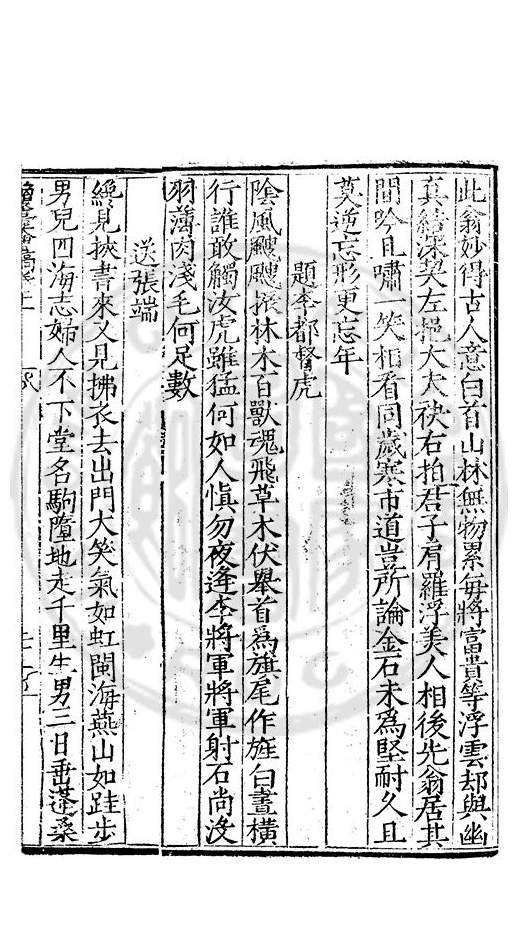 此翁妙得古人意白首山林無物累每將富貴等浮雲却與幽
真結深契左挹大夫袂右拍君子肩羅浮美人相後先翁居其
間吟且嘯一笑相看同歲寒市道豈所論金石未為堅耐久且
莫逆忘形更忘年
題李都督虎
陰風颼颼撼林木百獸魂飛草木伏舉首為旗尾作旌白晝橫
行誰敢觸汝虎雖猛何如人慎勿夜逢李將軍將軍射石尚沒
羽薄肉淺毛何足數
送張端
纔見挾書來又見拂衣去出門大笑氣如虹閩海燕山如跬步
男兒四海志婦人不下堂名駒墮地走千里生男三日垂蓬桑